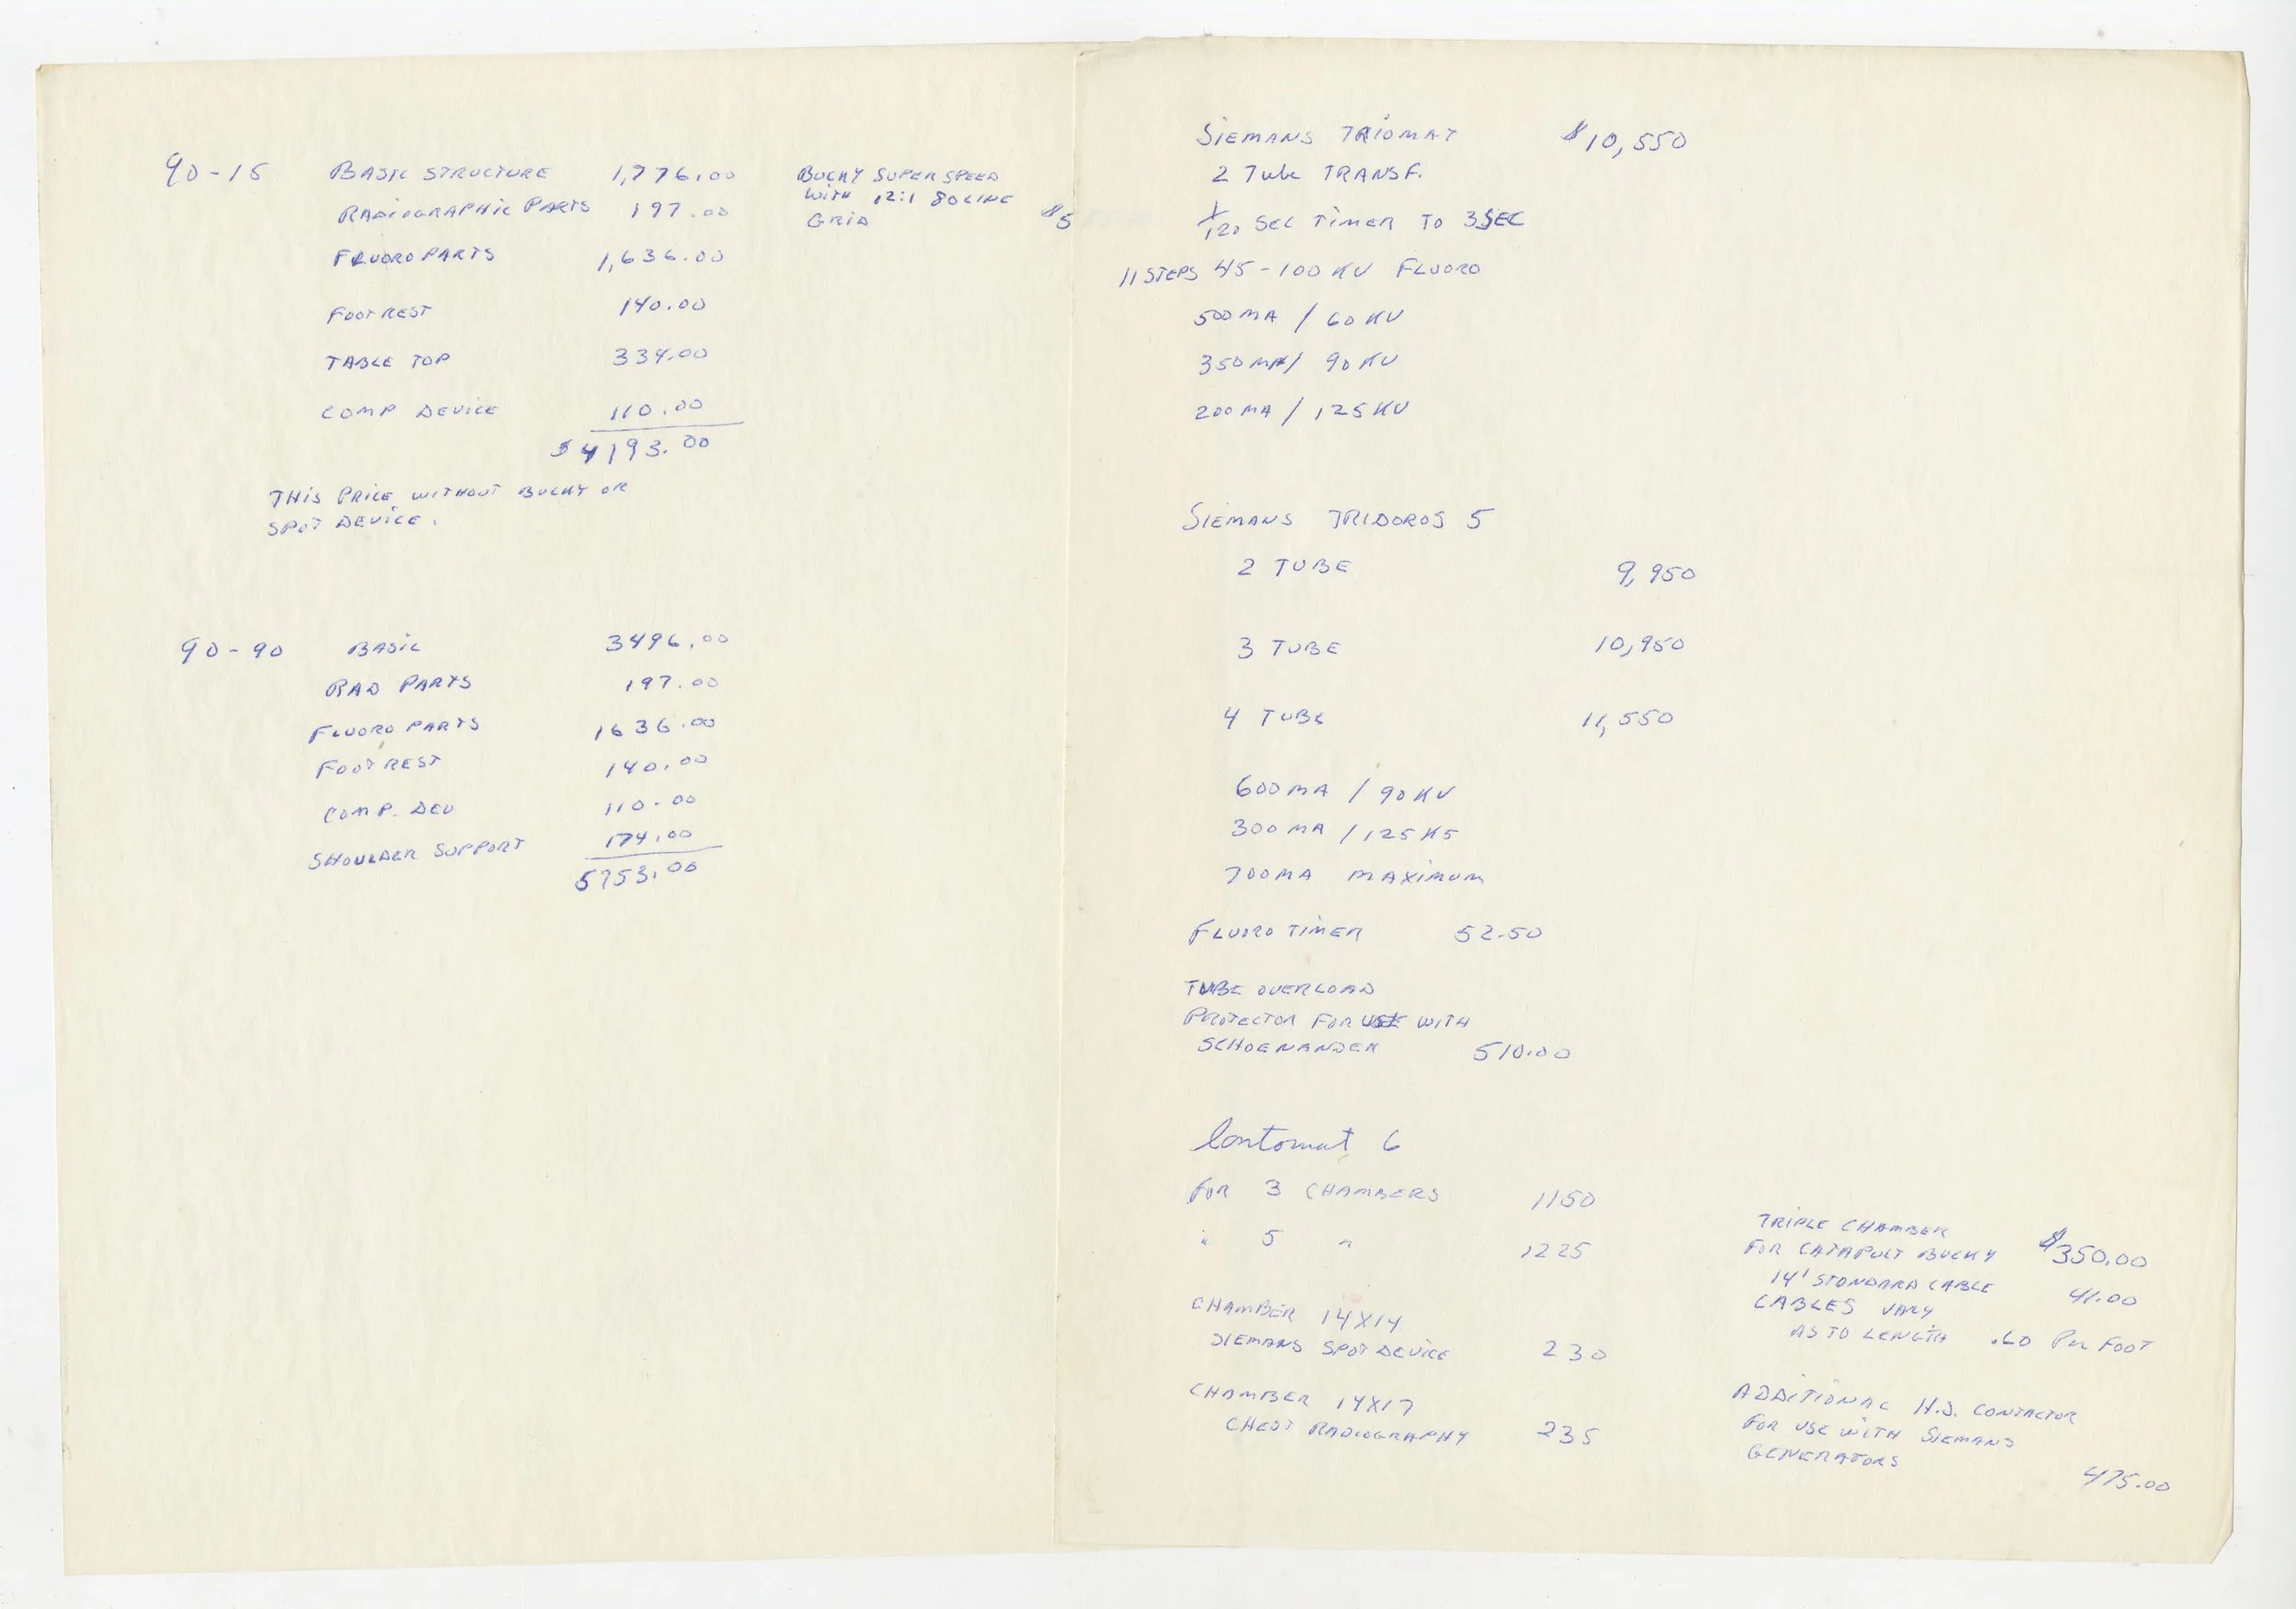 90-15 BASIC STRUCTURE 1,776.00
RADIOGRAPHIC PARTS 197.00
FLUORO PARTS 1,636.00
FOOT REST 140.00
TABLE TOP 334.00
COMP DEVICE 110.00
$4193.00
THIS PRICE WITHOUT BUCKY OR
SPOT DEVICE.
BUCKY SUPER SPEED
WITH 12:1 80 LINE
GRID $5
90-90 BASIC 3496.00
RAD PARTS 197.00
FLUORO PARTS 1636.00
FOOT REST 140.00
COMP. DEV 110.00
SHOULDER SUPPORT 174.00
5753.00
SIEMANS TRIOMAT $10,550
2 Tube TRANSF.
1/120 SEC TIMER TO 3 SEC
11 STEPS 45-100 KV FLUORO
500 MA / 60 KV
350 MA / 90 KV
200 MA / 125 KV
SIEMANS TRIDOROS 5
2 TUBE 9,950
3 TUBE 10,950
4 TUBE 11,550
600 MA / 90 KV
300 MA / 125 K5
700 MA MAXIMUM
FLUORO TIMER 52.50
TUBE OVERLOAD
PROTECTOR FOR USE WITH
SCHOENANDER 510.00
Iontomat 6
FOR 3 CHAMBERS 1150
" 5 " 1225
CHAMBER 14X14
SIEMANS SPOT DEVICE 230
CHAMBER 14X17
CHEST RADIOGRAPHY 235
TRIPLE CHAMBER
FOR CATAPULT BUCKY $350.00
14' STONDARD CABLE 41.00
CABLES VARY
AS TO LENGTH .60 Per FOOT
ADDITIONAL H.S. CONTACTOR
FOR USE WITH SIEMANS
GENERATORS
475.00